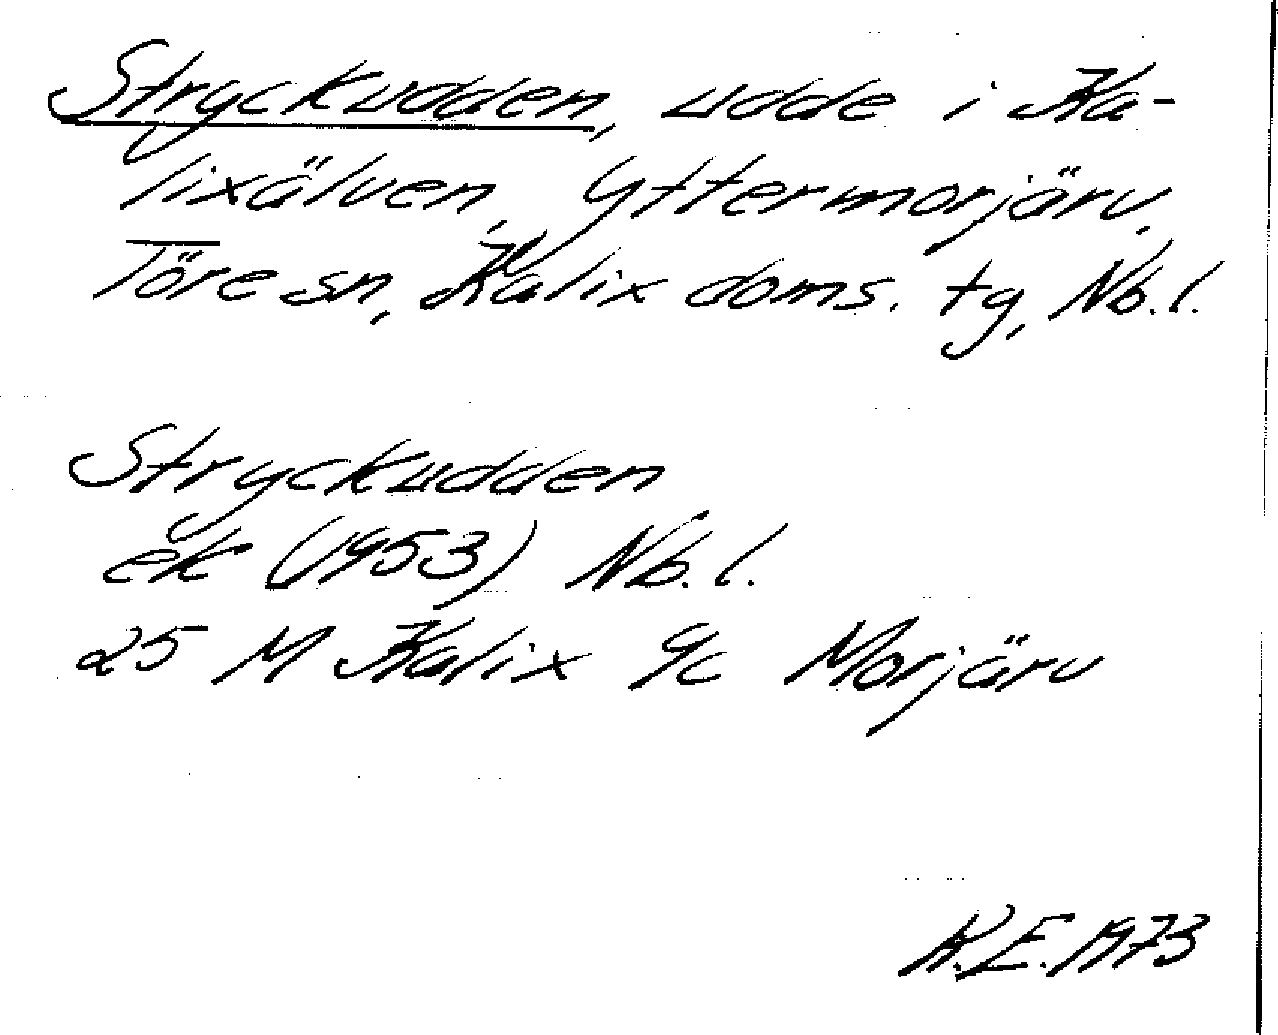 Stryckudden, udde i Ka-
lixälven, Yttermorjärv,
Töre sn, Kalix doms. tg, Nb.l.
Stryckudden
ek (1953) Nb.l.
25 M Kalix 9c Morjärv
K.E. 1973